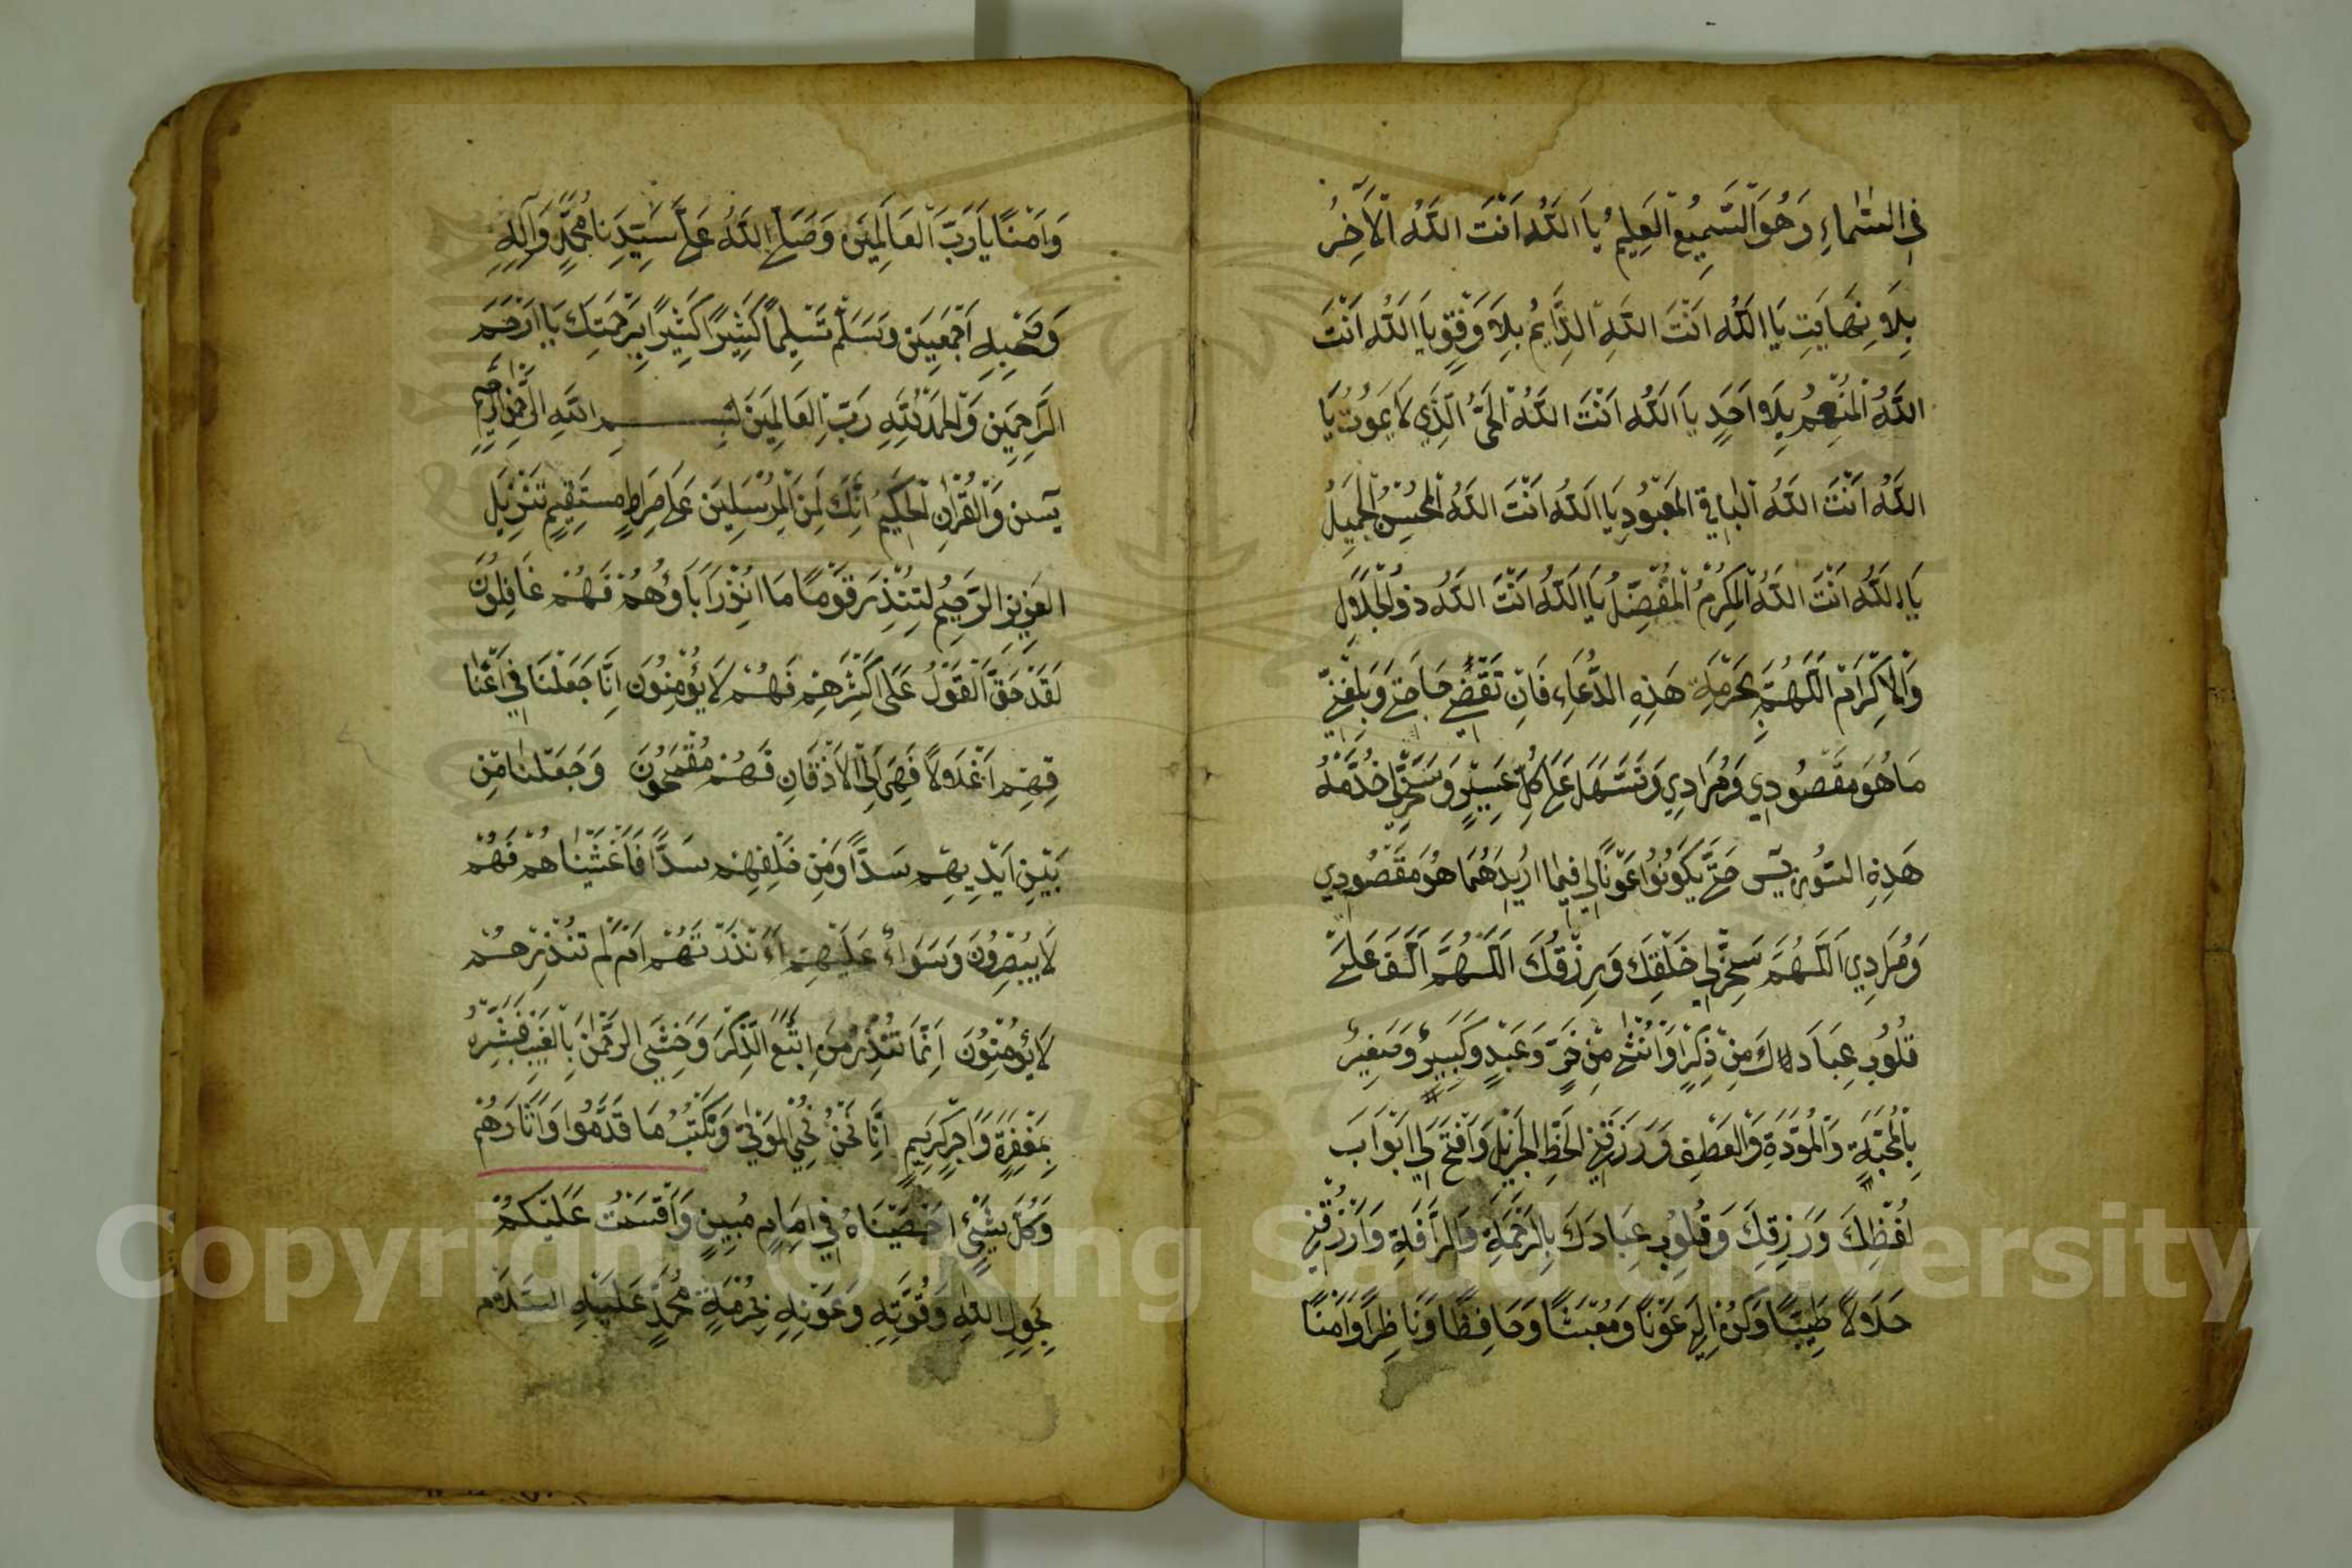 في السَّمَاءِ وَهُوَ السَّمِيعُ الْعَلِيمُ يَا اَللهُ اَنْتَ اللهُ الْاَخِرُ
بِلَا نِهَايَتِ يَا اَللهُ اَنْتَ اللهِ الدَّايِمُ بِلَا وَفِقٍ يَا اَللهُ اَنْتَ
اللهُ الْمُنْعِمُ بِلَا اَحَدٍ يَا اَللهُ اَنْتَ اللهُ الْحَىُّ الَّذِي لَا يَمُوتُ يَا
اللهُ اَنْتَ اللهُ الْبَاقِي الْمَعْبُودِ يَا اَللهُ اَنْتَ اللهُ الْمُحْسِنُ الْجَمِيلُ
يَا اللهُ اَنْتَ اللهُ الْمُكْرِمُ الْمُفَضِّلُ يَا اَللهُ اَنْتَ اللهُ ذو الْجَلَالِ
وَالْاِكْرَامِ اَللّٰهُمَّ بِحُرْمَةِ هَذِهِ الدُّعَاءِ فَاِنْ تَقْضِي حَاجَتِي وَبَلِّغْنِي
مَا هُوَ مَقْصُودِي وَمُرَادِي وَتَسَهَّلَ عَلَى كُلِّ عَسِيرٍ وَسَخِّرْلِي خُدَّمَةُ
هَذِهِ السُّورَ يٓس حَتَّى يَكُونُوا عَوْنًا لِي فِيمَا اُرِيدُهُمَا هُوَ مَقْصُودِي
وَمُرَادِي اَللّٰهُمَّ سَخِّرْلِي خَلْقِكَ وَرِزْقُكَ اللّٰهُمَّ اَلِّفْ عَلَيَّ
قُلُوبِ عِبَادِكَ مِنْ ذِكْرٍ اَوْ اُنْثَى مِنْ حَرٍّ وَعَبْدٍ وَكَبِيرٍ وَصَغِيرٍ
بِالْمُحَبَّةِ وَالْمُوَدَّةِ وَالْعَطْفِ وَرَزَقْنِي الْحَظِّ الْجَزِيلِ وَافْتَحْ لِي اَبْوَابَ
لُفْظِكَ وَرَزِقِكَ وَقُلُوبِ عِبَادِكَ بِالرَّحْمَةِ وَالرَّافَةِ وَارْزُقْنِي
حَلَالًا طَيِّبًا وَكُنْ لِي عَوْنًا وَمُعِينًا وَحَافِظًا وَنَاظِرًا وَاَمْنًا
وَاَمْنًا يَا رَبَّ الْعَالَمِينَ وَصَلَّى اللهُ عَلَى سَيِّدِنَا مُحَمَّدٍ وَاٰلِهِ
وَصَحْبِهِ اَجْمَعِينَ وَسَلَّمْ تَسْلِيمًا كَثِيرًا كَثِيرًا بِرَحْمَتِكَ يَا اَرْحَمَ
الرَّاحِمِينَ وَالْحَمْدُ لِلّٰهِ رَبِّ الْعَالَمِينَ بِسْمِ اللهِ الرَّحْمٰنِ الرَّحِيمِ
يٓسن وَالْقُرْاٰنِ الْحَكِيمِ اِنَّكَ لَمِنَ الْمُرْسَلِينَ عَلَى صِرَاطٍ مُسْتَقِيمٍ تَنْزِيلَ
الْعَزِيزِ الرَّحِيمِ لِتُنْذِرَ قَوْمًا مَا اُنْذِرَ اٰبَاؤُهُمْ فَهُمْ غَافِلُونَ
لَقَدْ حَقَّ الْقَوْلُ عَلَى اَكْثَرِهِمْ فَهُمْ لَا يُؤْمِنُونَ اِنَّا جَعَلْنَا فِي اَعْنَا
قِهِمْ اَغْلَالًا فَهِيَ اِلَى الْاَذْقَانِ فَهُمْ مُقْمَحُونَ وَجَعَلْنَا مِنْ
بَيْنِ اَيْدِيهِمْ سَدًّا وَمِنْ خَلْفِهِمْ سَدًّا فَاَغْشَيْنَاهُمْ فَهُمْ
لَا يُبْصِرُونَ وَسَوَاءٌ عَلَيْهِمْ ءَاَنْذَرْتَهُمْ اَمْ لَمْ تُنْذِرْهُمْ
لَا يُؤْمِنُونَ اِنَّمَا تُنْذِرُ مَنِ اتَّبَعَ الذِّكْرَ وَخَشِيَ الرَّحْمٰنَ بِالْغَيْبِ فَبَشِّرْهُ
بِمَغْفِرَةٍ وَاَجْرٍ كَرِيمٍ اِنَّا نَحْنُ نُحْيِ الْمَوْتٰى وَنَكْتُبُ مَا قَدَّمُوا وَاٰثَارَهُمْ
وَكُلَّ شَيْئٍ اَحْصَيْنَاهُ فِي اِمَامٍ مُبِينٍ وَاَقْسَمْتُ عَلَيْكُمْ
بِحَوْلِ اللهِ وَقُوَّتِهِ وَعَوْنِهِ بِحُرْمَةِ مُحَمَّدٍ عَلَيْهِ السَّلَامُ
Copyright © King Saud University
1957